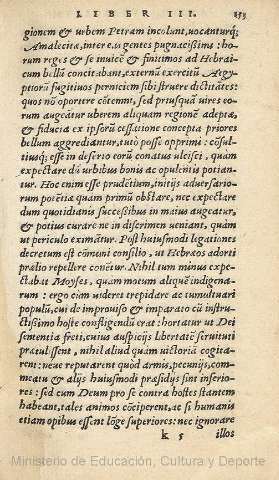 LIBER III. 153
gionem & urbem Petram incolunt, uocanturq;
Amalecitæ, inter eius gentes pugnacissimæ: ho-
rum reges & se inuicẽ & finitimos ad Hebrai-
cum bellũ concitabant, externũ exercitũ Aegy-
ptiorũ fugitiuos perniciem sibi struere dictitãtes:
quos nõ oportere cõtemni, sed priusquã uires eo-
rum augeãtur uberem aliquam regionẽ adeptæ,
& fiducia ex ipsorũ cessatione concepta priores
bellum aggrediantur, tutò posse opprimi: cõsul-
tiusq; esse in deserto eorũ conatus ulcisci, quam
expectare dũ urbibus bonis ac opulentis potian-
tur. Hoc enim esse prudẽtium, initijs aduersario-
rum potẽtiæ quam primũ obstare, nec expectare
dum quotidianis successibus in maius augeatur,
& potius curare ne in discrimen ueniant, quàm
ut periculo eximãtur. Post huiusmodi legationes
decretum est cõmuni consilio, ut Hebræos adorti
prælio repellere conẽtur. Nihil tum minus expe-
ctabat Moyses, quam motum aliquẽ indigena-
rum: ergo cùm uideret trepidare ac tumultuari
populũ, cui de improuiso & imparato cũ instru-
ctissimo hoste confligendũ erat: hortatur ut Dei
sententia freti, cuius auspicijs libertatẽ seruituti
prætulissent, nihil aliud quàm uictoriã cogita-
rent: neue reputarent quòd armis, pecunijs, com-
meatu & alijs huiusmodi præsidijs sint inferio-
res: sed cum Deum pro se contra hostes stantem
habeant, tales animos cõciperent, ac si humanis
etiam opibus essent lõge superiores: nec ignorare
k 5 illos
Ministerio de Educación, Cultura y Deporte